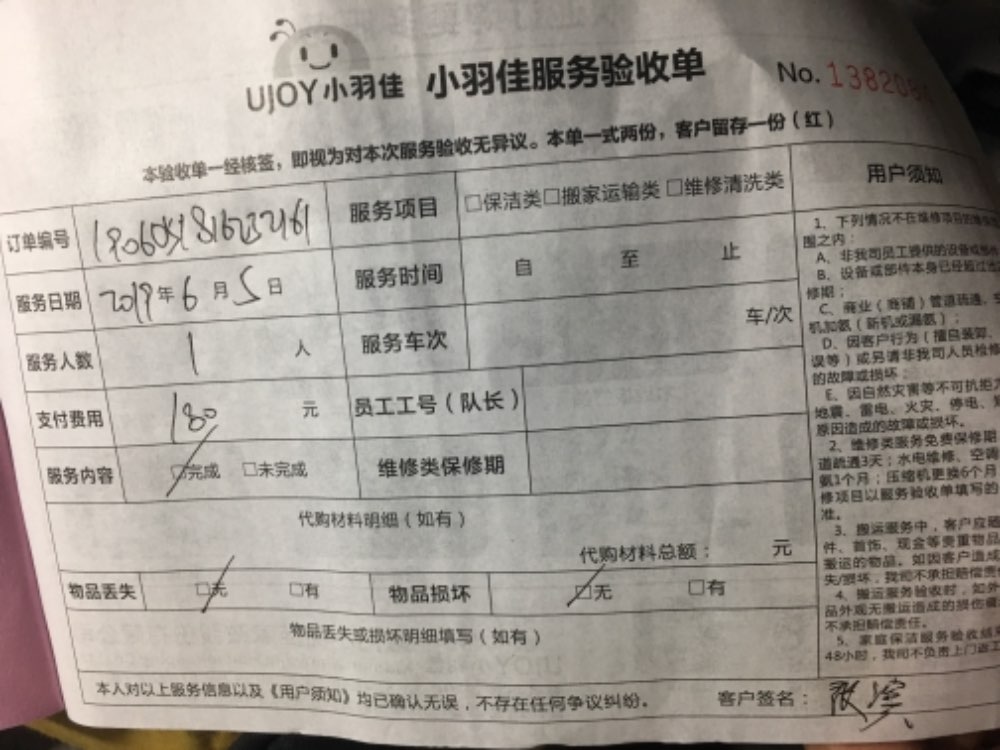 UJOY小羽佳 小羽佳服务验收单 No. 138208
本验收单一经核签，即视为对本次服务验收无异议。本单一式两份，客户留存一份（红）
订单编号
服务项目 □保洁类□搬家运输类 □维修清洗类
服务日期 2019年6月5日
服务时间 自 至 止
服务人数 1 人
服务车次 车/次
支付费用 180 元
员工工号（队长）
服务内容 □完成 □未完成
维修类保修期
代购材料明细（如有）
代购材料总额： 元
物品丢失 □无 □有 物品损坏 □无 □有
物品丢失或损坏明细填写（如有）
本人对以上服务信息以及《用户须知》均已确认无误，不存在任何争议纠纷。 客户签名：
用户须知
1、下列情况不在维修项目的
围之内：
A、非我司员工提供的设备或
B、设备或部件本身已经超过
修期；
C、商业（商铺）管道疏通、
机加氨（新机或漏氨）；
D、因客户行为（擅自装卸、
误等）或另请非我司人员检修
的故障或损坏；
E、因自然灾害等不可抗拒
地震、雷电、火灾、停电、
原因造成的故障或损坏。
2、维修类服务免费保修期
道疏通3天；水电维修、空调
氨1个月；压缩机更换6个月
修项目以服务验收单填写的
准。
3、搬运服务中，客户应
件、首饰、现金等贵重物品
搬运的物品。如因客户造成
失/损坏，我司不承担赔偿责
4、搬运服务验收时，如外
品外观无搬运造成的损伤
不承担赔偿责任。
5、家庭保洁服务验收
48小时，我司不负责上门返工